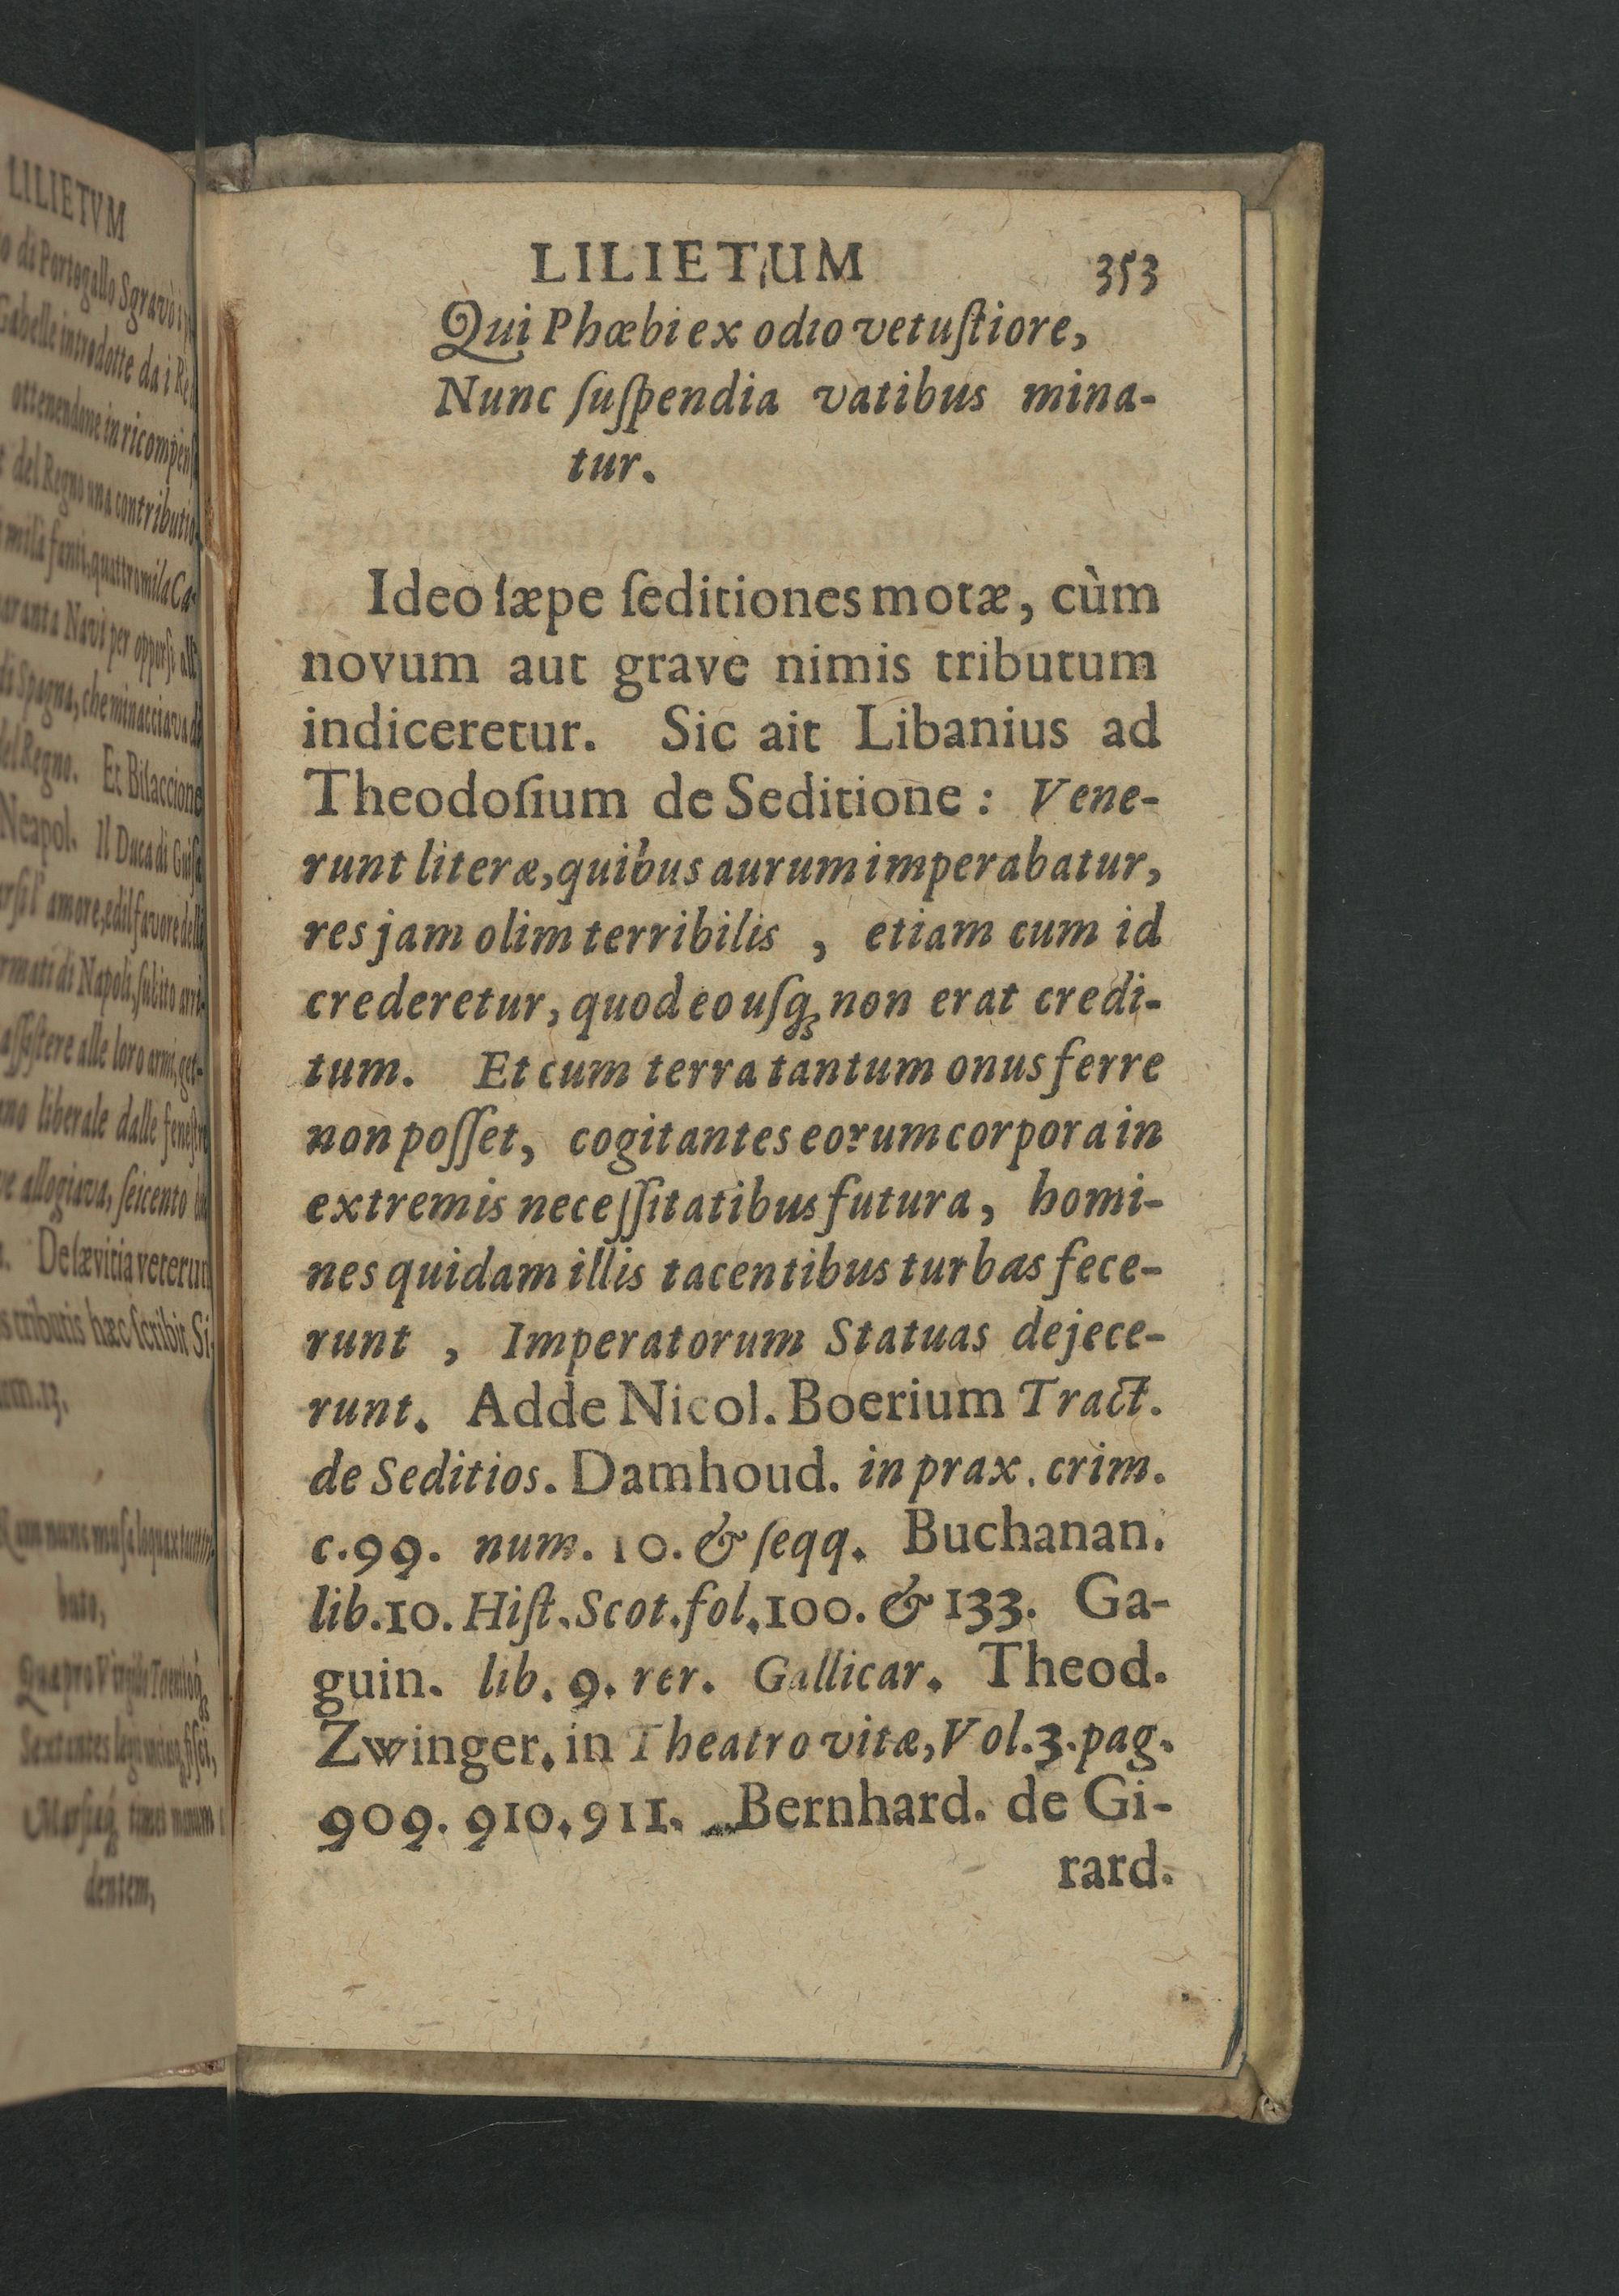 LILIETVM
di Portogallo Sgravò i
Gabelle introdotte da i Re
ottenendone in ricompens
del Regno una contributio
mila fanti, quattro mila Ca-
aranta Navi per opporsi all
di Spagna, che minacciava di
del Regno. Et Bisaccione
Neapol. Il Duca di Guisa
amore, ed il favore delli
rmati di Napoli, subito arri-
assistere alle loro armi, get-
liberale dalle fenestre
allogiava, seicento
De sævitia veterum
tributis hæc scribit Si-
num. 13.
nunc musa loquax
buto,
Quæ pro Virgilio
dentem,
LILIETUM 353
Qui Phœbi ex odio vetuſtiore,
Nunc ſuſpendia vatibus mina-
tur.
Ideo ſæpe ſeditiones motæ, cùm
novum aut grave nimis tributum
indiceretur. Sic ait Libanius ad
Theodoſium de Seditione: Vene-
runt literæ, quibus aurum imperabatur,
res jam olim terribilis , etiam cum id
crederetur, quod eo uſq; non erat credi-
tum. Et cum terra tantum onus ferre
non poſſet, cogitantes eorum corpora in
extremis neceſſitatibus futura, homi-
nes quidam illis tacentibus turbas fece-
runt , Imperatorum Statuas dejece-
runt. Adde Nicol. Boerium Tract.
de Seditios. Damhoud. in prax. crim.
c. 99. num. 10. & ſeqq. Buchanan.
lib. 10. Hiſt. Scot. fol. 100. & 133. Ga-
guin. lib. 9. rer. Gallicar. Theod.
Zwinger. in Theatro vitæ, Vol. 3. pag.
909. 910. 911. Bernhard. de Gi-
rard.